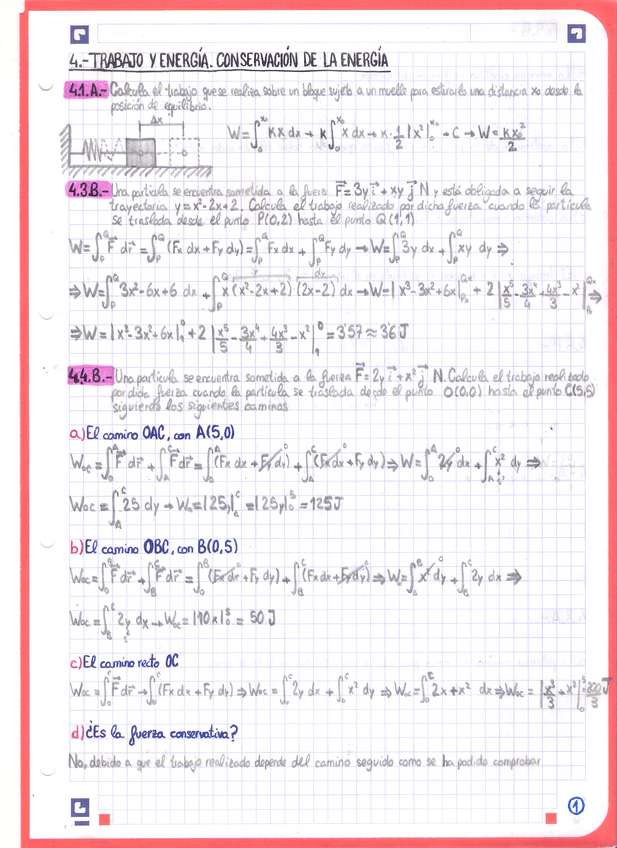 4.- TRABAJO Y ENERGÍA. CONSERVACIÓN DE LA ENERGÍA
4.1.A.- Calcula el trabajo que se realiza sobre un bloque sujeto a un muelle para estirarlo una distancia x₀ desde la
posición de equilibrio.
Δx
W = ∫₀^x₀ Kx dx → K ∫₀^x₀ x dx → K · 1/2 |x²|₀^x₀ + C → W = Kx₀²/2
4.3.B.- Una partícula se encuentra sometida a la fuerza F⃗ = 3y i⃗ + xy j⃗ N y está obligada a seguir la
trayectoria y = x² - 2x + 2. Calcula el trabajo realizado por dicha fuerza cuando la partícula
se traslada desde el punto P(0,2) hasta el punto Q(1,1)
W = ∫_P^Q F⃗ dr⃗ = ∫_P^Q (Fx dx + Fy dy) = ∫_P^Q Fx dx + ∫_P^Q Fy dy → W = ∫_P^Q 3y dx + ∫_P^Q xy dy ⇒
y dy
⇒ W = ∫_P^Q 3x² - 6x + 6 dx + ∫_P^Q x (x² - 2x + 2) (2x - 2) dx → W = |x³ - 3x² + 6x|_Px^Qx + 2 |x⁵/5 - 3x⁴/4 + 4x³/3 - x²|_Px^Qx ⇒
⇒ W = |x³ - 3x² + 6x|₁⁰ + 2 |x⁵/5 - 3x⁴/4 + 4x³/3 - x²|₁⁰ = 3'57 ≈ 3'6 J
4.4.B.- Una partícula se encuentra sometida a la fuerza F⃗ = 2y i⃗ + x² j⃗ N. Calcula el trabajo realizado
por dicha fuerza cuando la partícula se traslada desde el punto O(0,0) hasta el punto C(5,5)
siguiendo los siguientes caminos
a) El camino OAC, con A(5,0)
W_OC = ∫₀^A F⃗ dr⃗ + ∫_A^C F⃗ dr⃗ = ∫₀^A (Fx dx + Fy dy) + ∫_A^C (Fx dx + Fy dy) ⇒ W = ∫₀^A 2y dx + ∫_A^C x² dy ⇒
W_OC = ∫_A^C 25 dy → W = |25y|_A^C = |25y|₀⁵ = 125 J
b) El camino OBC, con B(0,5)
W_OC = ∫₀^B F⃗ dr⃗ + ∫_B^C F⃗ dr⃗ = ∫₀^B (Fx dx + Fy dy) + ∫_B^C (Fx dx + Fy dy) ⇒ W = ∫₀^B x² dy + ∫_B^C 2y dx ⇒
W_OC = ∫_B^C 2y dx → W_OC = |10x|₀⁵ = 50 J
c) El camino recto OC
W_OC = ∫₀^C F⃗ dr⃗ → ∫₀^C (Fx dx + Fy dy) ⇒ W_OC = ∫₀^C 2y dx + ∫₀^C x² dy ⇒ W_OC = ∫₀^C 2x + x² dx ⇒ W_OC = |x³/3 + x²|₀⁵ = 200/3 J
d) ¿Es la fuerza conservativa?
No, debido a que el trabajo realizado depende del camino seguido como se ha podido comprobar
1